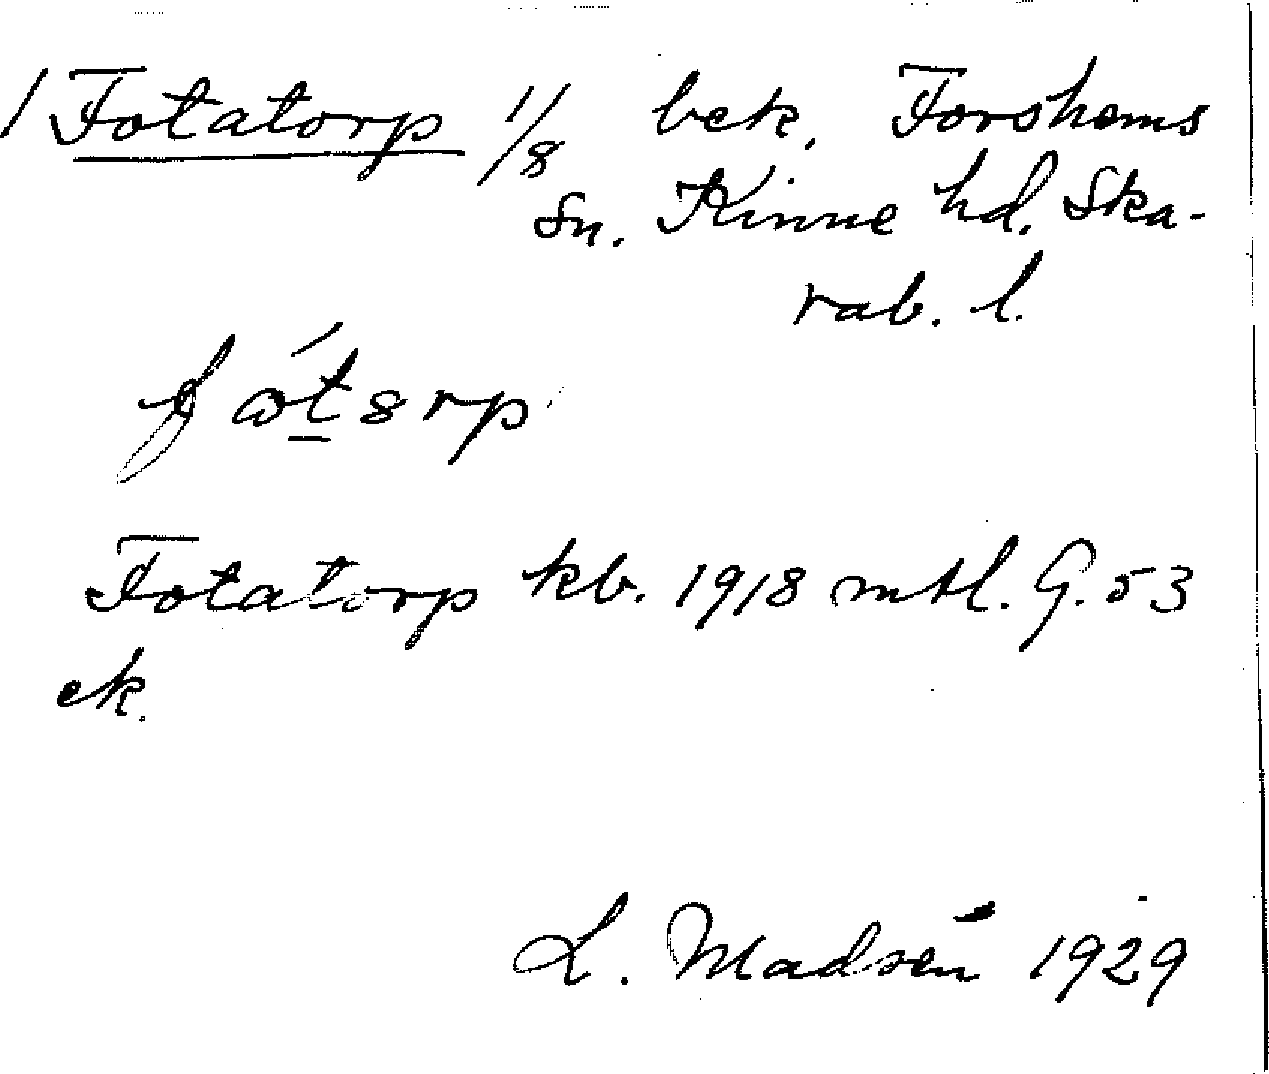 / Fotatorp 1/8 bek, Forshems
Sn. Kinne hd. Ska-
rab. l.
Fotatorp kb. 1918 mtl. G. 53
ek.
L. Madsén 1929